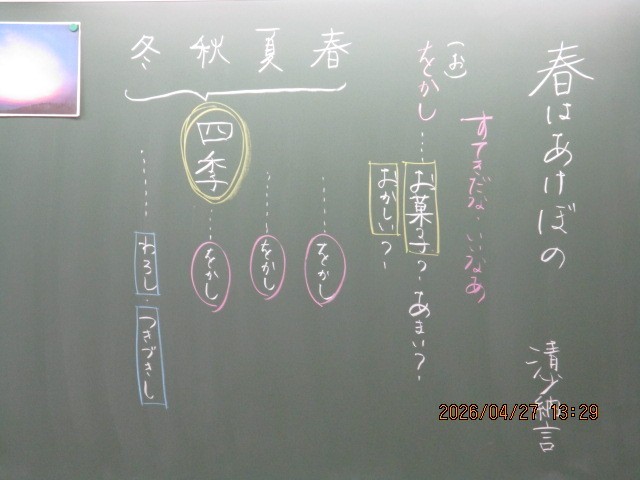 春はあけぼの
清少納言
すてきだな・いいなあ
(お)
をかし…お菓子?あまい?
おかしい?
春
夏
秋
冬
四季
………をかし
………をかし
……をかし
………わろし・つきづきし
2026/04/27 13:29